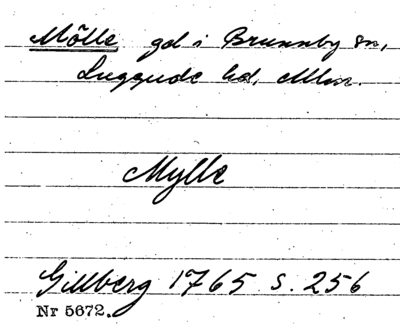 Mölle gd i Brunnby sn,
Luggude hd, Mlm.
Mylle
Gillberg 1765 s. 256
Nr 5672.